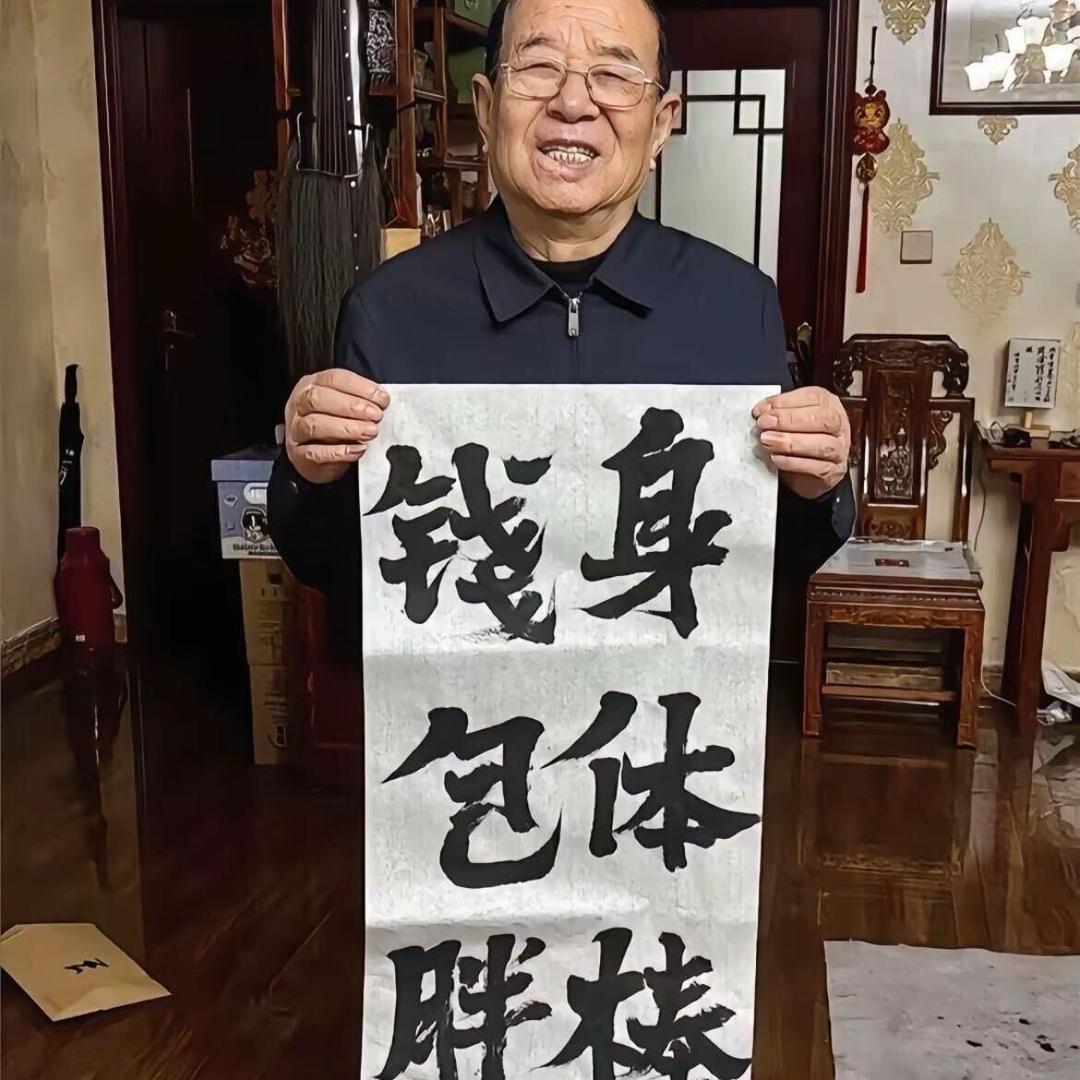 身体棒
钱包胖